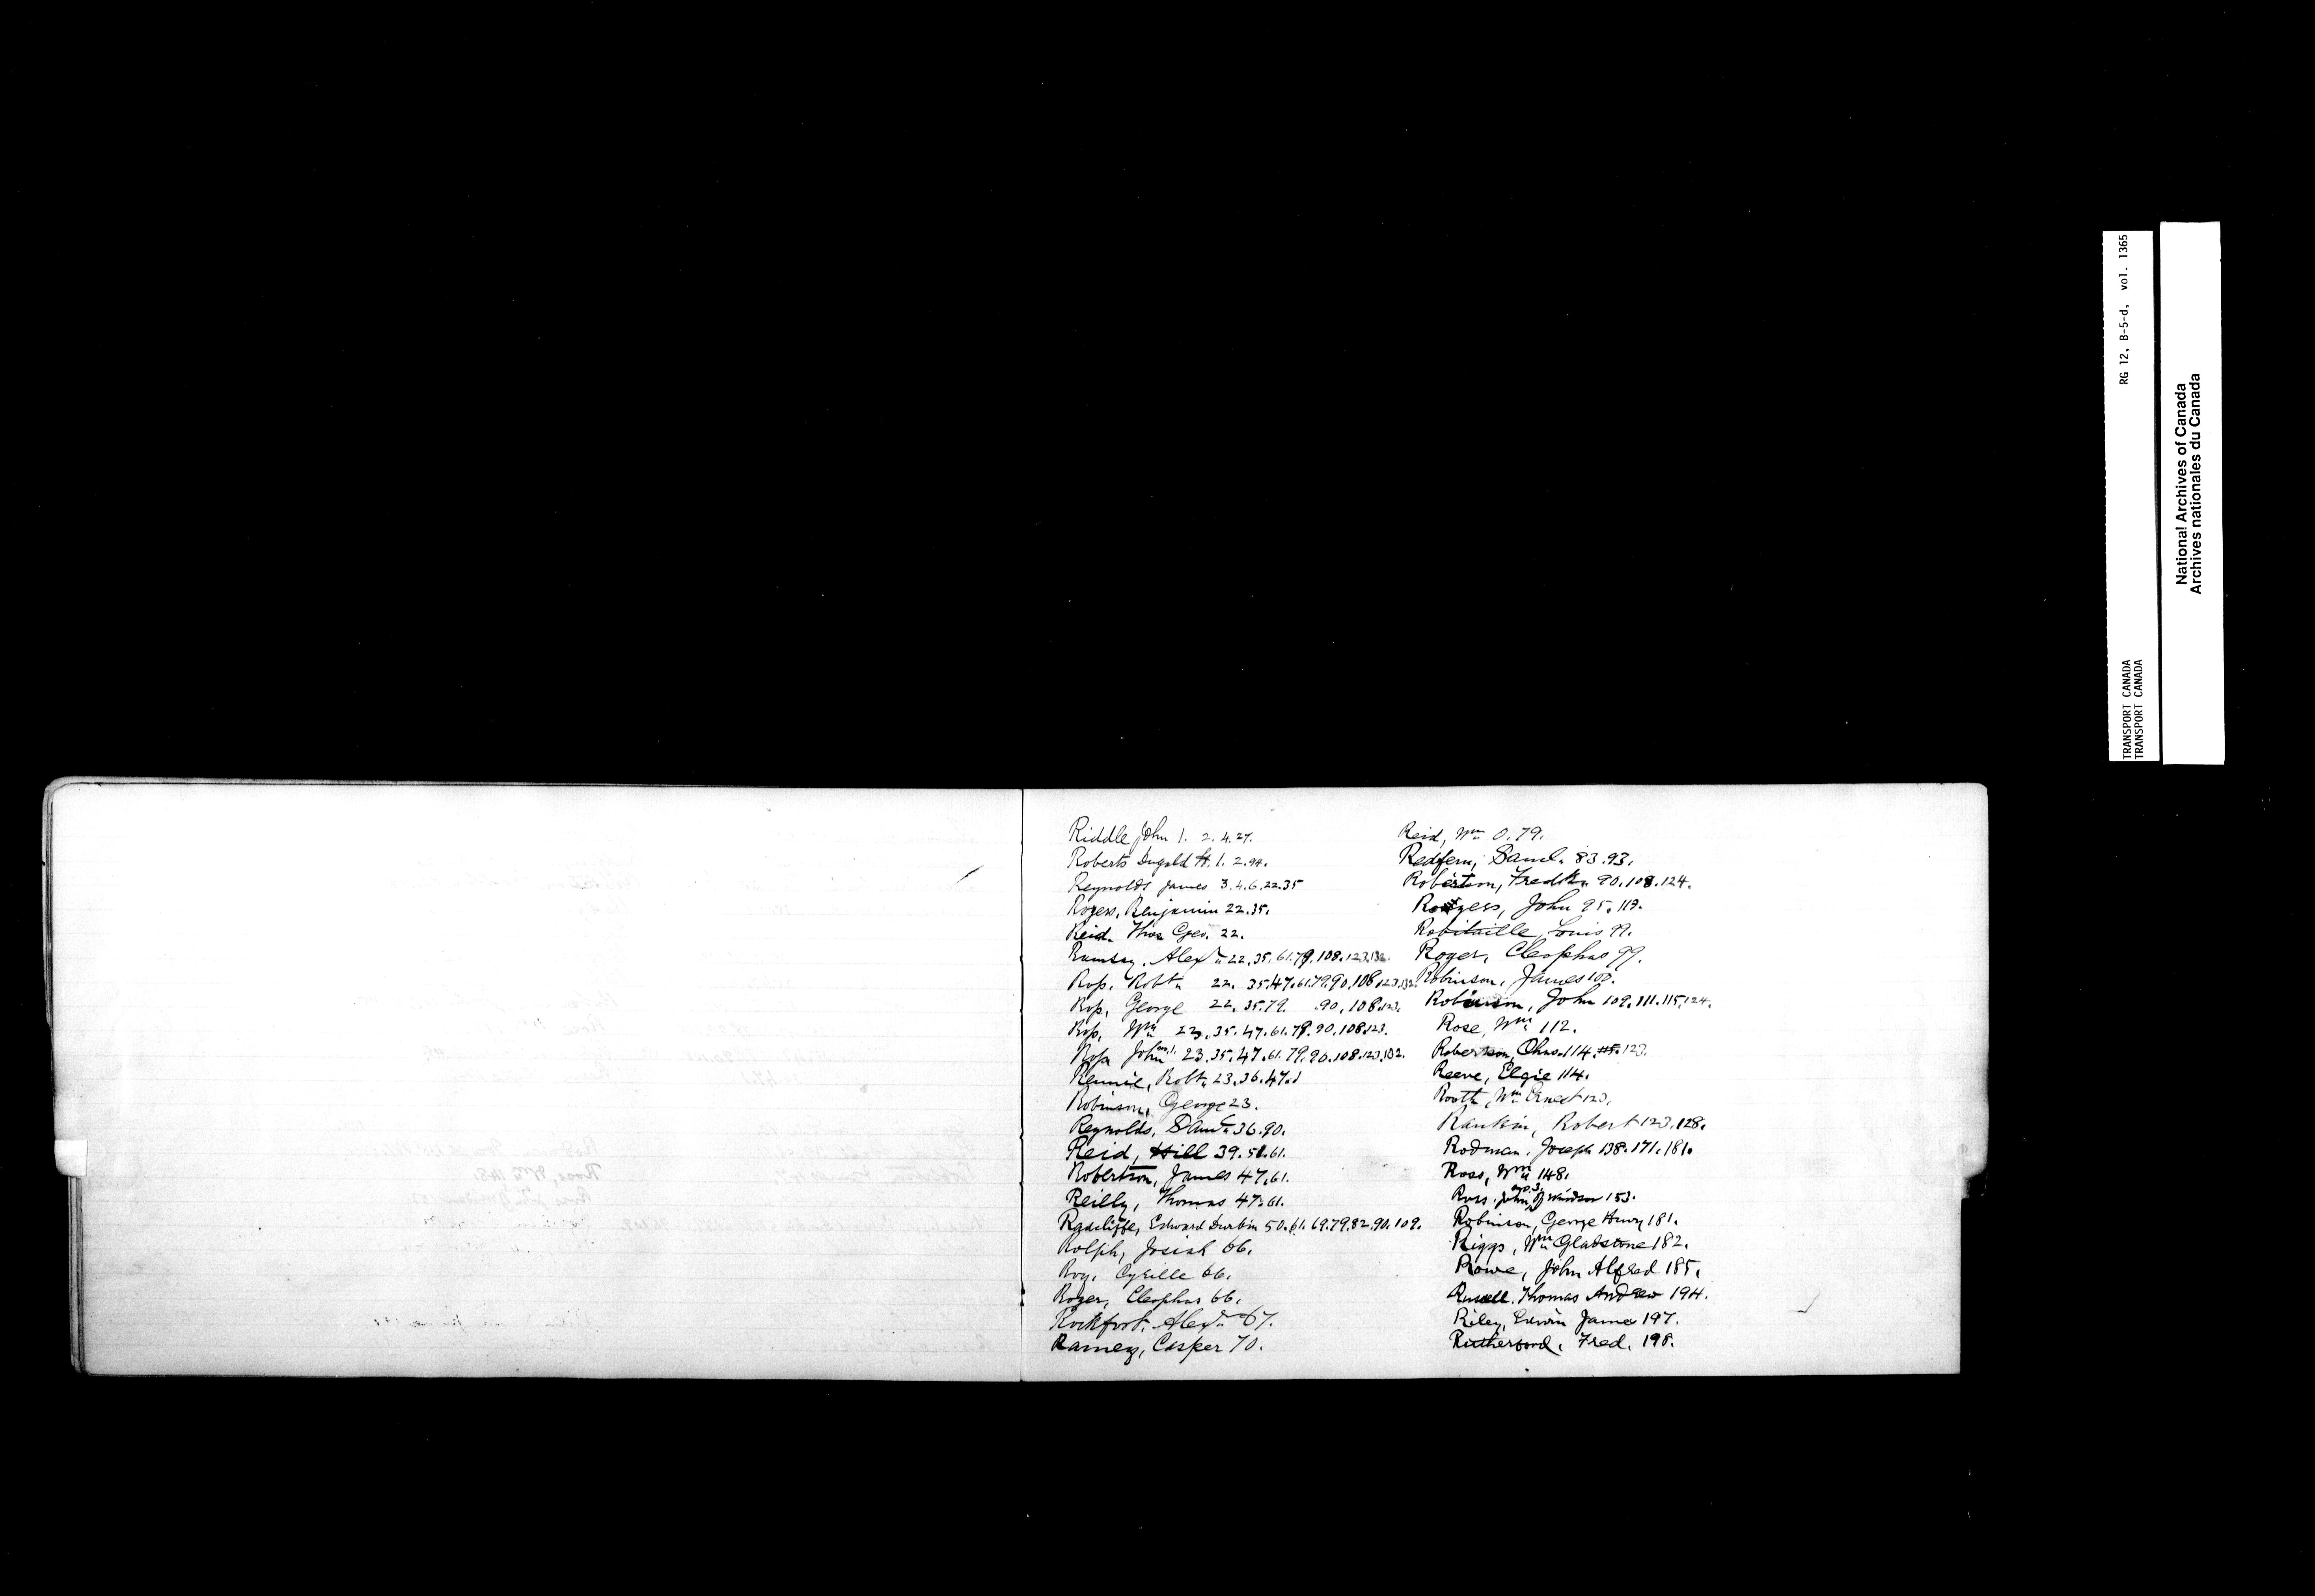 Riddle John 1. 2. 4. 27.
Roberts Dugald H. 1. 2. 94.
Reynolds James 3. 4. 6. 22. 35
Rogers, Benjamin 22. 35.
Reid. Thos Geo. 22.
Ramsay. Alexr 22. 35. 61. 79. 108. 123. 132.
Ross. Robt. 22. 35. 47. 61. 79. 90. 108. 123. 132.
Ross, George 22. 35. 79. 90, 108. 123.
Ross, Wm 23. 35. 47. 61. 79. 90, 108. 123.
Ross John no. 1. 23. 35. 47. 61. 79. 90. 108. 123. 132.
Rennie, Robt. 23. 36. 47.
Robinson, George 23.
Reynolds, Saml. 36. 90.
Reid, Hill 39. 51. 61.
Robertson, James 47. 61.
Reilly, Thomas 47. 61.
Radcliffe, Edward Durbin 50. 61. 69. 79. 82. 90. 109.
Rolph, Josiah 66.
Roy. Cyrille 66.
Roger, Cleophas 66.
Rochfort. Alexr 67.
Ramey, Casper 70.
Reid, Wm O. 79.
Redfern, Saml. 83. 93.
Robertson, Fredk. 90. 108. 124.
Rodgers, John 95. 113.
Robitaille, Louis 99.
Roger, Cleophas 99.
Robinson, James 100.
Robinson, John 109. 111. 115. 124.
Rose, Wm 112.
Roberson, Chas. 114. 115. 123.
Reeve, Elgie 114.
Rooth, Wm Ernest 123.
Rankin, Robert 123. 128.
Rodman. Joseph 138. 171. 181.
Ross, Wm 148.
Ross. John no. 3 of Windsor 153.
Robinson, George Henry 181.
Riggs, Wm Gladstone 182.
Rowe, John Alfred 185.
Russell. Thomas Andrew 194.
Riley, Edwin James 197.
Rutherford. Fred. 198.
RG 12, B-5-d, vol. 1365
TRANSPORT CANADA
TRANSPORT CANADA
National Archives of Canada
Archives nationales du Canada